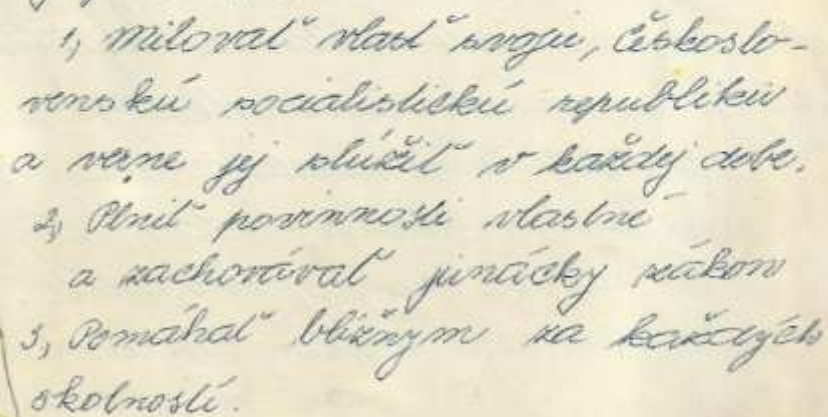 1, Milovať vlasť svoju, Českoslo-
venskú socialistickú republiku
a verne jej slúžiť v každej dobe.
2, Plniť povinnosti vlastné
a zachovávať junácky zákon
3, Pomáhať blížnym za každých
okolností.